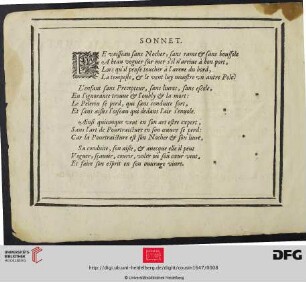 SONNET.
LE vaisseau sans Nocher, sans rame & sans boussole
A beau voguer sur mer s'il n'arriue à bon port,
Lors qu'il pense toucher à l'areine du bord,
La tempeste, & le vent luy monstre vn autre Pole?
L'enfant sans Precepteur, sans liures, sans escole,
En l'ignorance treuue & l'oubly & la mort:
Le Pelerin se perd, qui sans conduite sort,
Et sans aisles l'oiseau qui dedans l'air s'enuole.
Ainsi quiconque veut en son art estre expert,
Sans l'art de Pourtraicture en son œuure se perd:
Car la Pourtraicture est son Nocher & son liure,
Sa conduite, son aisle, & auecque elle il peut
Voguer, sçauoir, courir, voler où son cœur veut,
Et faire son esprit en son ouurage viure.
UNIVERSITÄTS-
BIBLIOTHEK
HEIDELBERG
DFG
© Universitätsbibliothek Heidelberg